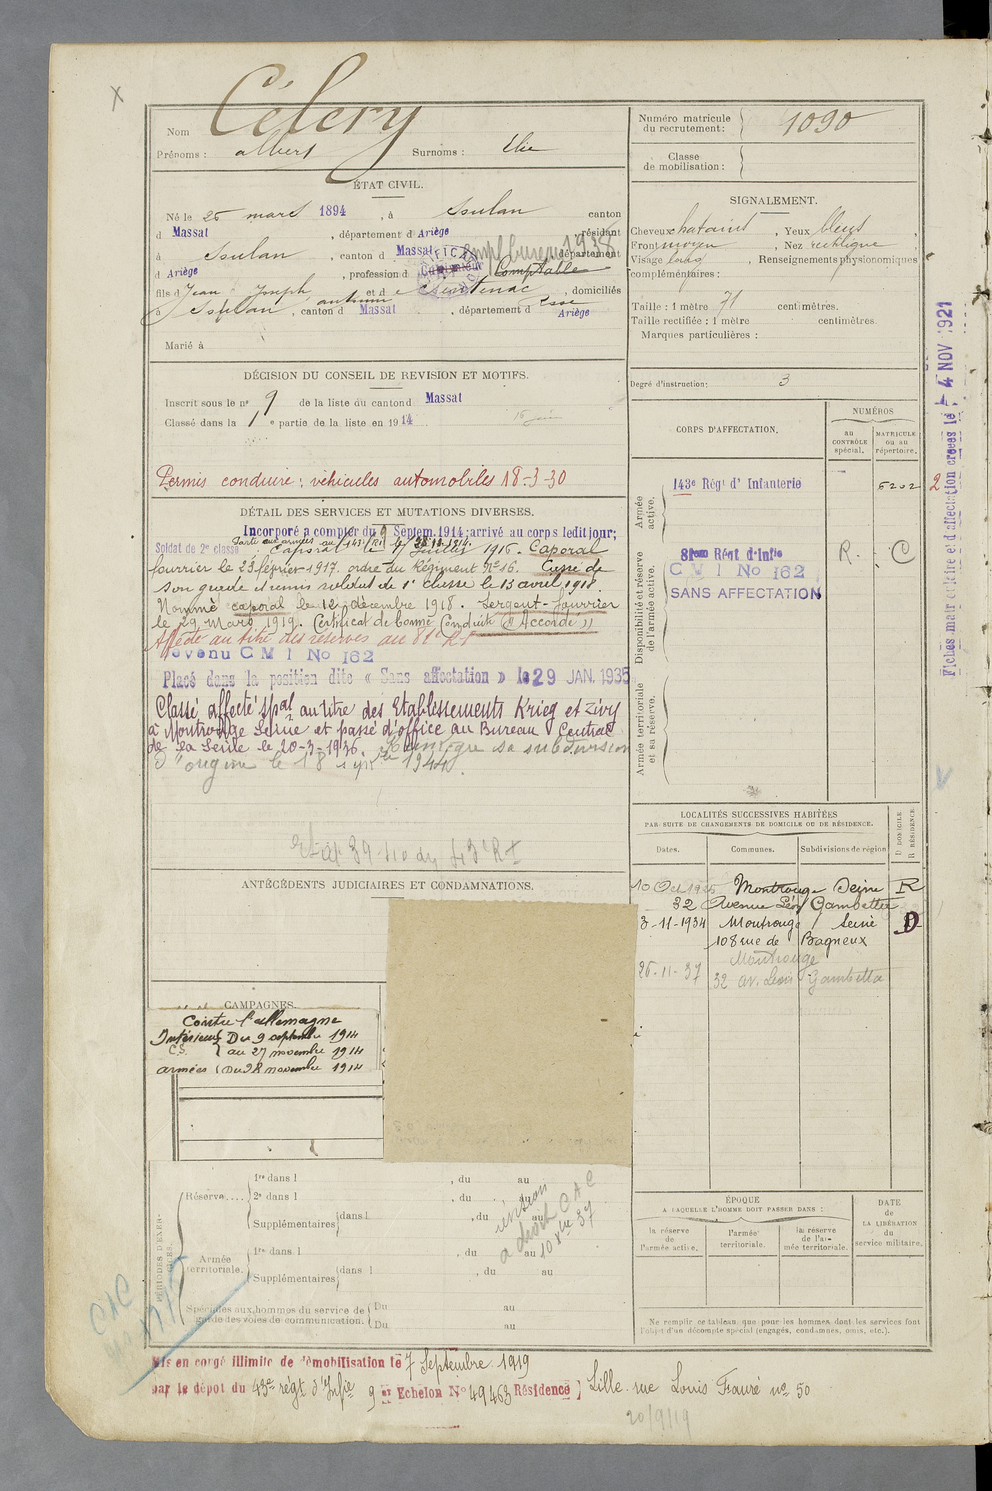 Nom Célery
Prénoms : albert Surnoms : Elie
ÉTAT CIVIL.
Né le 26 mars 1894, à Soulan canton
d Massat, département d Ariège résidant
à Soulan, canton d Massat département
empl bureau 1938
d Ariège, profession d Comptable
fils d Jean Joseph et d Sentenac, domiciliés
à Soulan, canton d Massat, département d Ariège
Marié à
DÉCISION DU CONSEIL DE REVISION ET MOTIFS.
Inscrit sous le n° 9 de la liste du canton d Massat
Classé dans la 1e partie de la liste en 1914
Permis conduire : véhicules automobiles 18-3-30
DÉTAIL DES SERVICES ET MUTATIONS DIVERSES.
Incorporé a compter du 9 Septem. 1914; arrivé au corps ledit jour;
Parti aux armées au 143e RI le
Soldat de 2e classe Caporal le 7 Juillet 1916. Caporal
fourrier le 23 février 1917. ordre du Régiment N° 16. Cassé de
son grade et remis soldat de 1e classe le 13 avril 1918.
Nommé caporal le 12 décembre 1918. Sergent-fourrier
le 29 Mars 1919. Certificat de bonne Conduite "Accordé"
Affecté au titre des réserves au 81e RI
devenu C M I No 162
Placé dans la position dite « Sans affectation » le 29 JAN. 1935
Classé affecté spal au titre des Etablissements Krieg et Zivy
à Montrouge Seine et passé d'office au Bureau Central
de la Seine le 20-3-1936. Réintègre sa subdivision
d'origine le 18 1944.
ANTÉCÉDENTS JUDICIAIRES ET CONDAMNATIONS.
CAMPAGNES.
Contre l'allemagne
Intérieur Du 9 septembre 1914
C.S. au 27 novembre 1914
armées Du 28 novembre 1914
PÉRIODES D'EXERCICES.
Réserve.... 1re dans l , du au
2e dans l , du au
Supplémentaires dans l , du au
Armée territoriale. 1re dans l , du au
Supplémentaires dans l , du au
révision
a droit C A C
Spéciales aux hommes du service de garde des voies de communication. Du au
Du au
CAC
Mis en congé illimité de démobilisation le 7 Septembre 1919
par le dépot du 43e régt d'Infie 9 Echelon No 49463 Résidence Lille rue Louis Fauré no 50
20/9/19
Numéro matricule du recrutement : 1090
Classe de mobilisation :
SIGNALEMENT.
Cheveux chatains, Yeux bleus
Front moyen, Nez rectiligne
Visage long, Renseignements physionomiques
complémentaires :
Taille : 1 mètre 71 centimètres.
Taille rectifiée : 1 mètre centimètres
Marques particulières :
Degré d'instruction: 3
CORPS D'AFFECTATION.
NUMÉROS
au CONTRÔLE spécial.
MATRICULE ou au répertoire.
Armée active.
143e Régt d' Infanterie 6202
Disponibilité et réserve de l'armée active.
81eme Régt d'Infie R. C
C M I No 162
SANS AFFECTATION
Armée territoriale et sa réserve.
Fiches matriculaire et d'affectation créées le 4 NOV 1921
2
LOCALITÉS SUCCESSIVES HABITÉES
PAR SUITE DE CHANGEMENTS DE DOMICILE OU DE RÉSIDENCE.
Dates. Communes. Subdivisions de région D DOMICILE R RÉSIDENCE
10 Oct Montrouge Seine R
32 Avenue Léon Gambetta
3-11-1934 Montrouge Seine D
108 rue de Bagneux
26-11-37 Montrouge
32 av. Léon Gambetta
ÉPOQUE
A LAQUELLE L'HOMME DOIT PASSER DANS :
la réserve de l'armée active.
l'armée territoriale.
la réserve de l'armée territoriale.
DATE de LA LIBÉRATION du service militaire.
Ne remplir ce tableau que pour les hommes dont les services font
l'objet d'un décompte spécial (engagés, condamnés, omis, etc.).